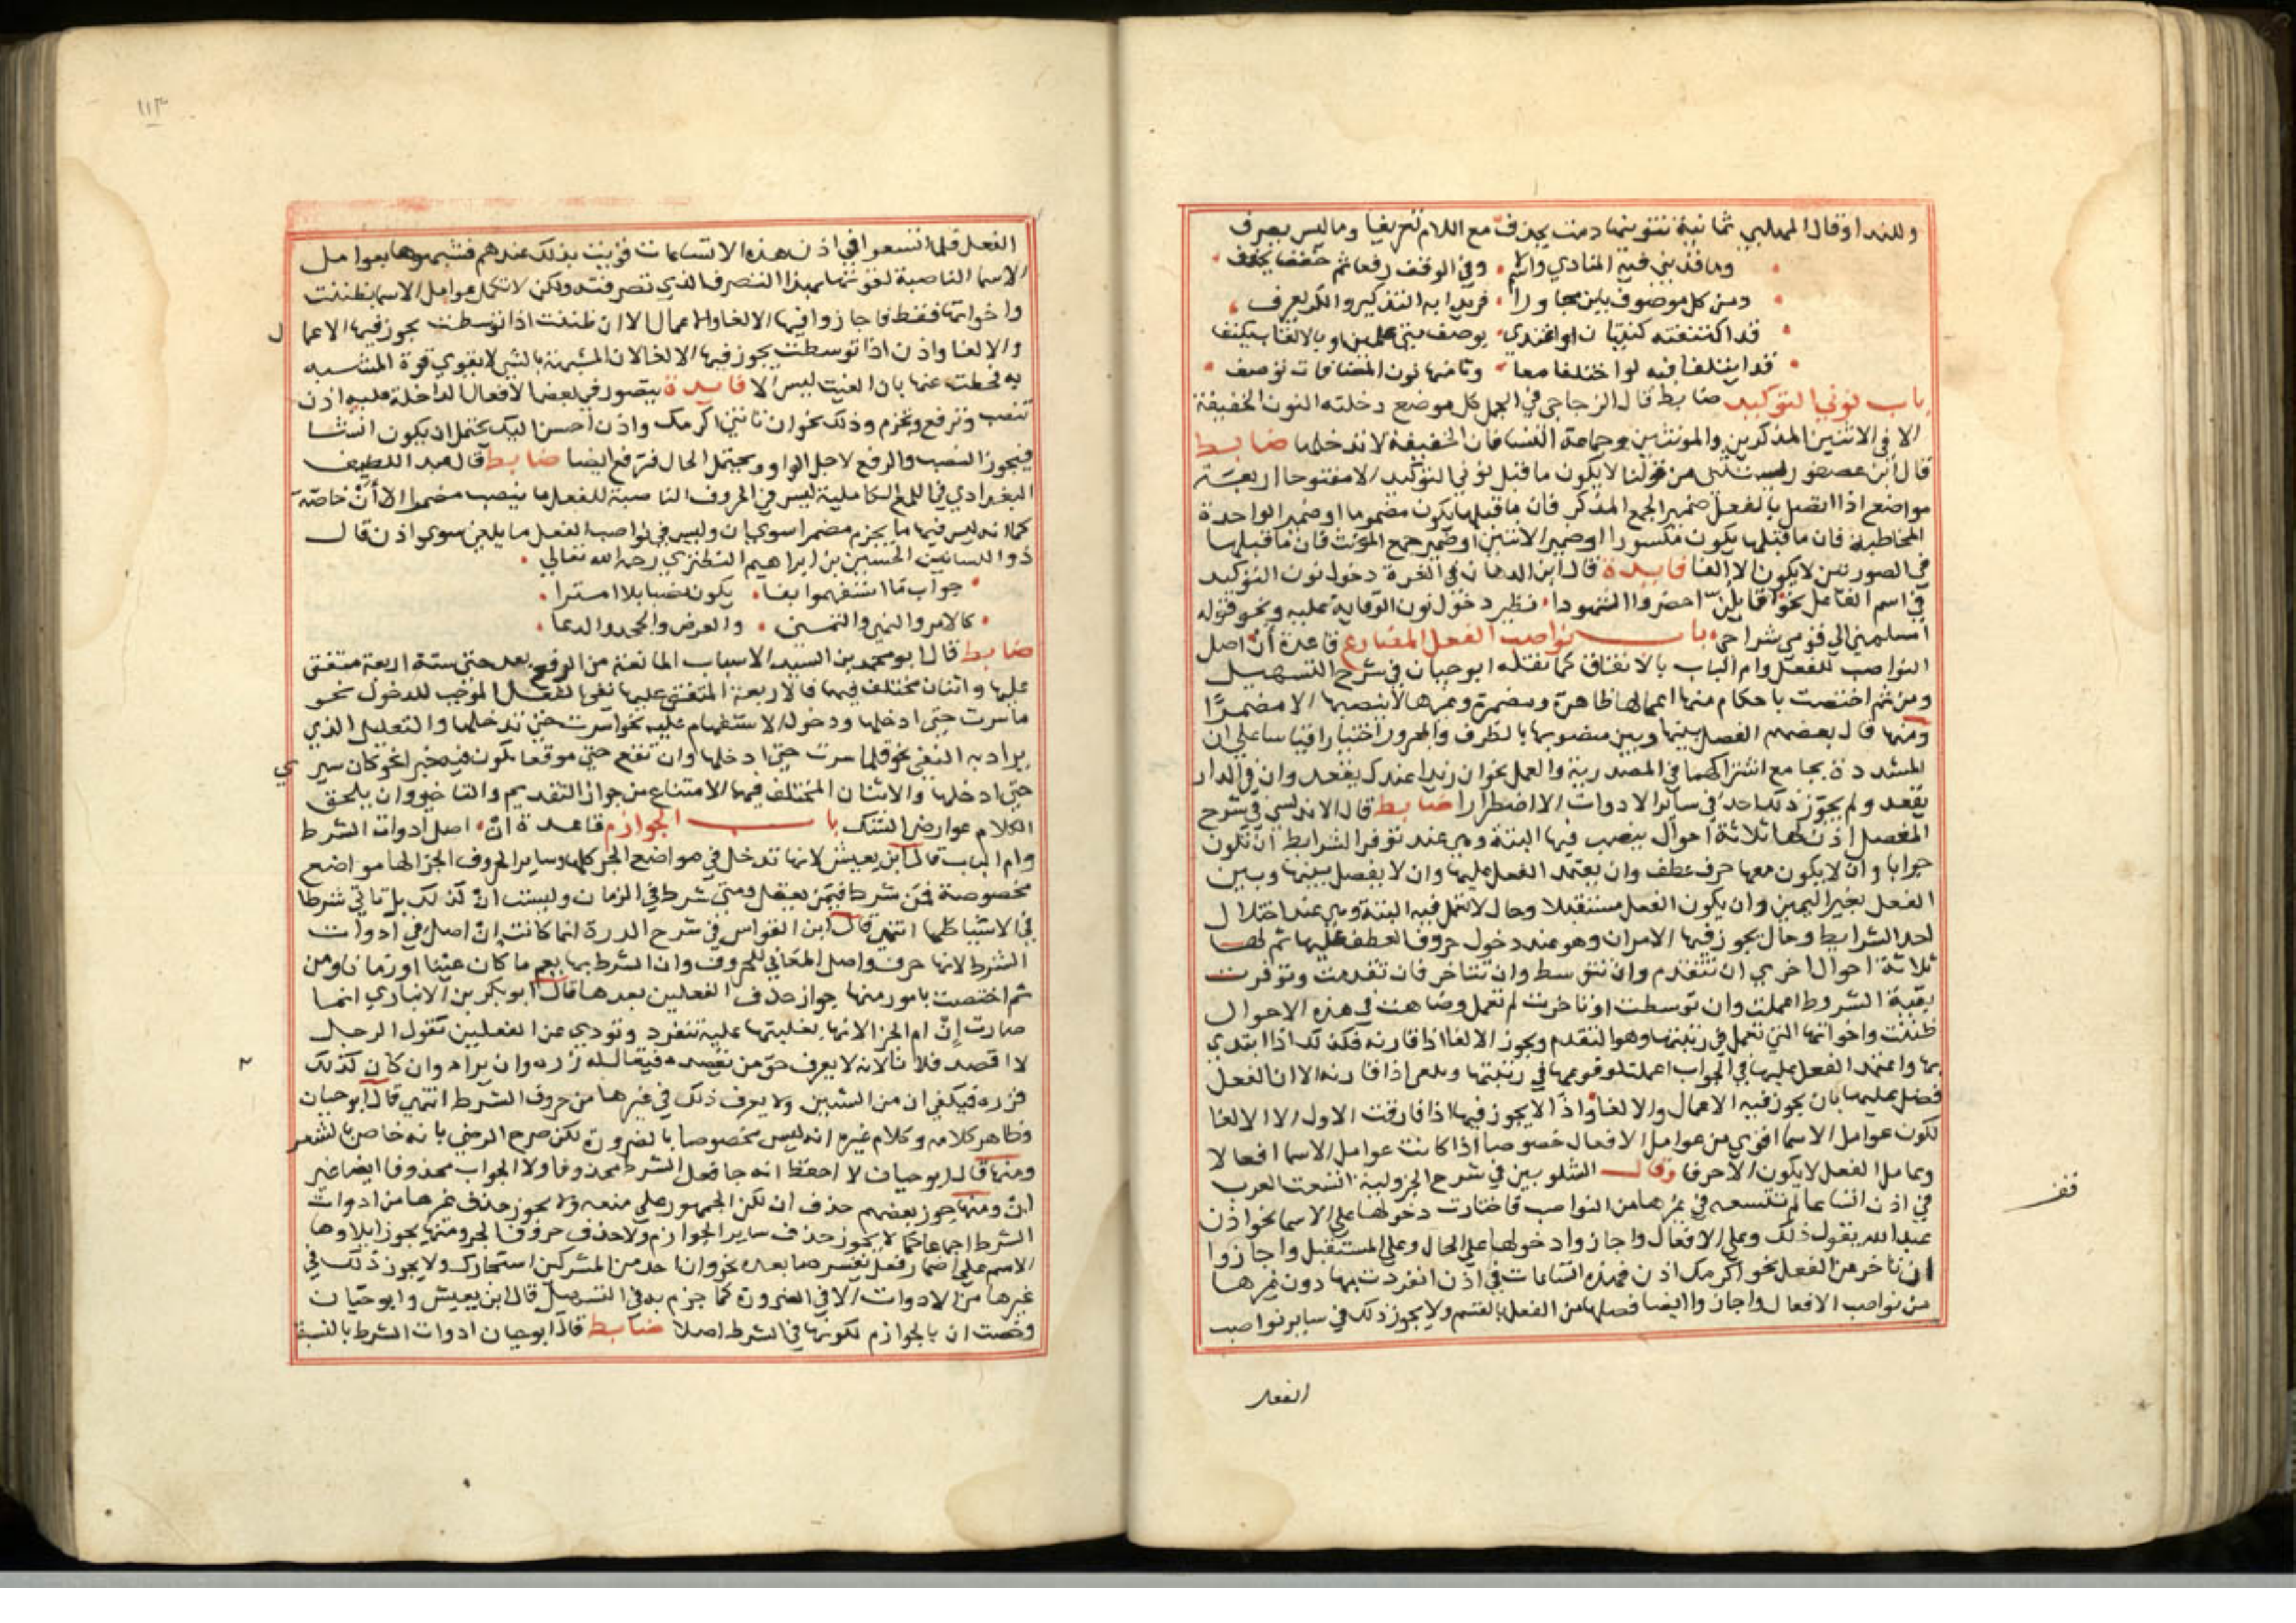 وللندا وقال المهلبي ثمانية تنوينها دمت يحذف مع اللام تعريفا وما ليس يصرف
وما قد بني فيه المنادي واسم وفي الوقف رفعا ثم خفضا يخفف
ومن كل موصوف بابن مجاورا فريدا به التذكير والكل يعرف
قد اكتنفته كنيتان او اغتدي يوصف بين علمين او بالالقاب يكنف
قد ايتلفا فيه لو اختلفا معا وثامنها نون المضافات توصف
باب نوني التوكيد ضابط قال الزجاجي في الجمل كل موضع دخلته النون الخفيفة
الا في الاثنين المذكرين والمونثين وجماعة النسا فان الخفيفة لا تدخلها ضابط
قال ابن عصفور يستثنى من قولنا لا يكون ما قبل نوني التوكيد الا مفتوحا اربعة
مواضع اذا اتصل بالفعل ضمير الجمع المذكر فان ما قبلها يكون مضموما او ضمير الواحدة
المخاطبة فان ما قبلها يكون مكسورا او ضمير الاثنين او ضمير جمع المونث فان ما قبلها
في الصورتين لا يكون الا الفا فايدة قال ابن الدهان في الغرة دخول نون التوكيد
في اسم الفاعل نحو اقايلن احضروا الشهودا نظير دخول نون الوقاية عليه ونحو قوله
امسلمني الي قومي شراحي باب نواصب الفعل المضارع قاعدة أن اصل
النواصب للفعل وام الباب بالاتفاق كما نقله ابو حيان في شرح التسهيل
ومن ثم اختصت باحكام منها اعمالها ظاهرة ومضمرة وغيرها لا ينصبها الا مضمرا
ومنها قال بعضهم الفصل بينها وبين منصوبها بالظرف والمجرور اختيارا قياسا علي ان
المشددة بجامع اشتراكهما في المصدرية والعمل نحو ان زيدا عندك يقعد وان في الدار
يقعد ولم يجوز ذلك احد في ساير الادوات الا اضطرارا ضابط قال الاندلسي في شرح
المفصل اذن لها ثلاثة احوال ينصب فيها البتة وهي عند توفر الشرايط ان تكون
جوابا وان لا يكون معها حرف عطف وان يعتمد الفعل عليها وان لا يفصل بينها وبين
الفعل بغير اليمين وان يكون الفعل مستقبلا وحال لا تعمل فيه البتة وهي عند اختلال
احد الشرايط وحال يجوز فيها الامران وهو عند دخول حروف العطف عليها ثم لها
ثلاثة احوال اخري ان تتقدم وان تتوسط وان تتاخر فان تقدمت وتوفرت
بقية الشروط اعملت وان توسطت او تاخرت لم تعمل وضاهت في هذه الاحوال
ظننت واخواتها التي تعمل في رتبتها وهو التقدم ويجوز الالغا اذا قارنه فكذلك اذا ابتدي
بها واعتمد الفعل عليها في الجواب اعملت لوقوعها في رتبتها وتلغى اذا فارقته الا ان الفعل
فضل عليها بان يجوز فيه الاعمال والالغا واذا لا يجوز فيها اذا فارقت الاول الا الالغا
لكون عوامل الاسما اقوى من عوامل الافعال خصوصا اذا كانت عوامل الاسما افعالا
وعامل الفعل لا يكون الا حرفا وقال الشلوبين في شرح الجزولية اتسعت العرب
في اذن اتساعا لم تتسعه في غيرها من النواصب فاختارت دخولها علي الاسما نحو اذن
عبد الله يقول ذلك وعلى الافعال واجازوا دخولها على الحال وعلى المستقبل واجازوا
ان تاخر عن الفعل نحو اكرمك اذن فهذه اتساعات في اذن انفردت بها دون غيرها
من نواصب الافعال واجازوا ايضا فصلها من الفعل بالقسم ولا يجوز ذلك في ساير نواصب
قف
الفعل
١١٣
الفعل فلما اتسعوا في اذن هذه الاتساعات قويت بذلك عندهم فشبهوها بعوامل
الاسما الناصبة لقوتها بهذا التصرف الذي تصرفته ولكن لا تكل عوامل الاسما بظننت
واخواتها فقط فاجازوا فيها الالغا والاعمال الا ان ظننت اذا توسطت يجوز فيها الاعمال
والالغا واذن اذا توسطت يجوز فيها الالغا لان المشبه بالشي لا يقوي قوة المشبه
به فحطت عنها بان الغيت ليس الا فايدة يتصور في بعض الافعال الداخلة عليه اذن
تنصب وترفع وتجزم وذلك نحو ان تاتني اكرمك واذن احسن اليك يحتمل ان يكون انشا
فيجوز النصب والرفع لاجل الواو ويحتمل الحال فترفع ايضا ضابط قال عبد اللطيف
البغدادي في اللمع الكاملية ليس في الحروف الناصبة للفعل ما ينصب مضمرا الا أن خاصة
كما انه ليس فيها ما يجزم مضمرا سوى ان وليس في نواصب الفعل ما يلغى سوى اذن قال
ذو اللسانين الحسين بن ابراهيم النطنزي رحمه الله تعالي
جواب ما استفهموا بفا يكون نصبا بلا امترا
كالامر والنهي والتمني والعرض والجحد والدعا
ضابط قال ابو محمد بن السيد الاسباب المانعة من الرفع بعد حتى ستة اربعة متفق
عليها واثنان مختلف فيها فالاربعة المتفق عليها نفي الفعل الموجب للدخول نحو
ما سرت حتى ادخلها ودخول الاستفهام عليه نحو اسرت حتى تدخلها والتقليل الذي
يراد به النفي نحو قلما سرت حتى ادخلها وان تقع حتى موقعا تكون فيه خبرا نحو كان سيري
حتى ادخلها والاثنان المختلف فيها الامتناع من جواز التقديم والتاخير وان يلحق
الكلام عوارض الشك باب الجوازم قاعدة ان اصل ادوات الشرط
وام الباب قال ابن يعيش لانها تدخل في مواضع الجزا كلها وساير حروف الجزا لها مواضع
مخصوصة فمن شرط فيمن يعقل ومتى شرط في الزمان وليست ان كذلك بل تاتي شرطا
في الاشيا كلها انتهى قال ابن القواس في شرح الدرة انما كانت ان اصل في ادوات
الشرط لانها حرف واصل المعاني للحروف وان الشرط بها يعم ما كان عينا او زمانا ومن
ثم اختصت بامور منها جواز حذف الفعلين بعدها قال ابو بكر بن الانباري انما
صارت إن ام الجزا لانها بغلبتها عليه تنفرد وتودي عن الفعلين تقول الرجل
لا اقصد فلانا لانه لا يعرف حق من يقصده فيقال له زره وان يراد وان كان كذلك
فزره فيكفي ان من الشيين ولا يعرف ذلك في غيرها من حروف الشرط انتهى قال ابو حيان
وظاهر كلامه وكلام غيره انه ليس مخصوصا بالضرورة لكن صرح الرضي بانه خاص بالشعر
ومنها قال ابو حيان لا احفظ انه جا فعل الشرط محذوفا ولا الجواب محذوفا ايضا غير
ان ومنها جوز بعضهم حذف ان لكن الجمهور على منعه ولا يجوز حذف غيرها من ادوات
الشرط اجماعا كما لا يجوز حذف ساير الجوازم ولا حذف حروف الجر ومنها يجوز ايلاوها
الاسم على اضمار فعل يفسره ما بعده نحو وان احد من المشركين استجارك ولا يجوز ذلك في
غيرها من الادوات الا في الضرورة كما جزم به في التسهيل قال ابن يعيش وابو حيان
وخصت ان بالجوازم لكونها في الشرط اصلا ضابط قال ابو حيان ادوات الشرط بالنسبة